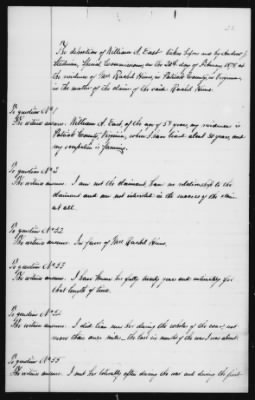 The deposition of William A. East taken before me by Andrew J.
Stedman, Special Commissioner, on the 20th day of February 1878 at
the residence of Mrs Rachel Hines, in Patrick County, in Virginia,
in the matter of the claim of the said Rachel Hines.
To question No 1
The witness answers. William A. East, of the age of 59 years, my residence is
Patrick County, Virginia, where I have lived about 30 years, and
my occupation is farming.
To question No 2
The witness answers. I am not the claimant, has no relationship to the
claimant and am not interested in the success of the claim
at all.
To question No 52
The witness answers. In favor of Mrs Rachel Hines.
To question No 53
The witness answers. I have known her fully twenty years and intimately for
that length of time.
To question No 54
The witness answers. I did live near her during the whole of the war, not
more than one mile. the last months of the war I was absent.
To question No 55
The witness answers. I met her tolerably often during the war and during the first